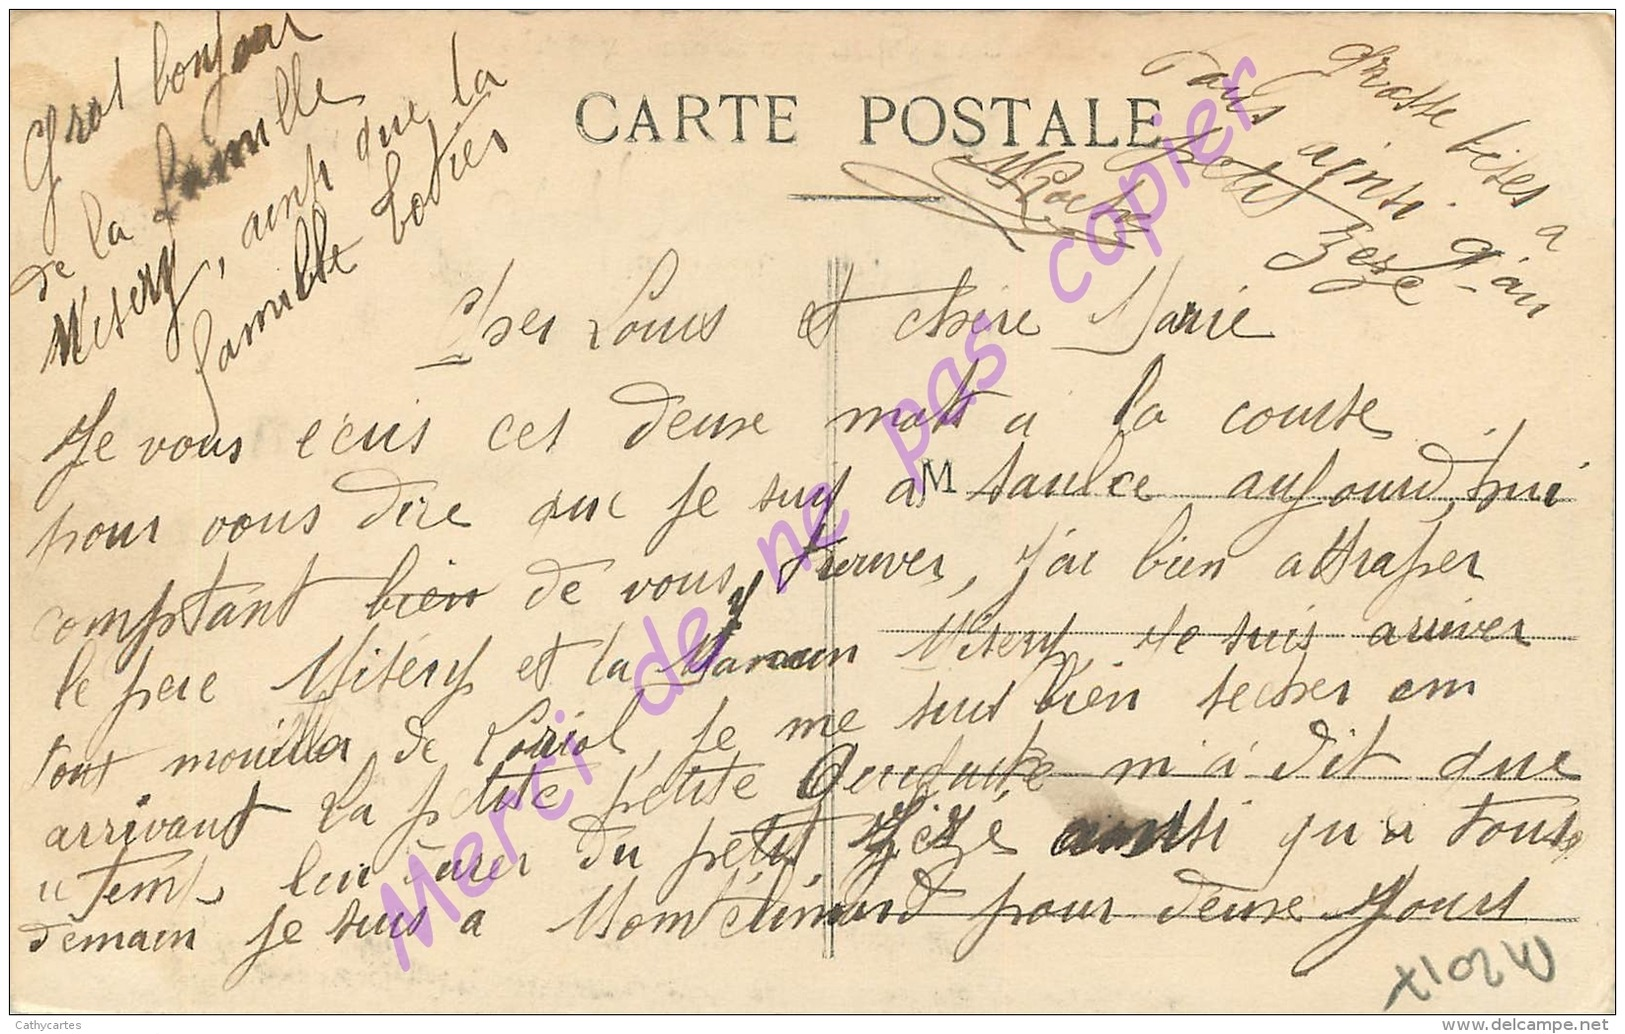 Gros bonjour
de la famille
Misery, ainsi que la
famille Botier
CARTE POSTALE
grosse bises a
Tous ainsi q'au
petit Zeze
Cher Louis et chère Marie
Je vous ecris ces deux mots a la course
pour vous dire que je suis a M Saulce aujourd'hui
comptant bien de vous truver, j'ai bien attraper
le pere Misery et la Maman Misery, je suis arriver
tout mouiller de Loriol, je me suis bien secher em
arrivant La petite petite m'a dit que
le temp lui durer du petit Zézé ainsi qu'a tous
demain je suis a Montélimard pour deux Jours
Merci de ne pas copier
Cathycartes
www.delcampe.net